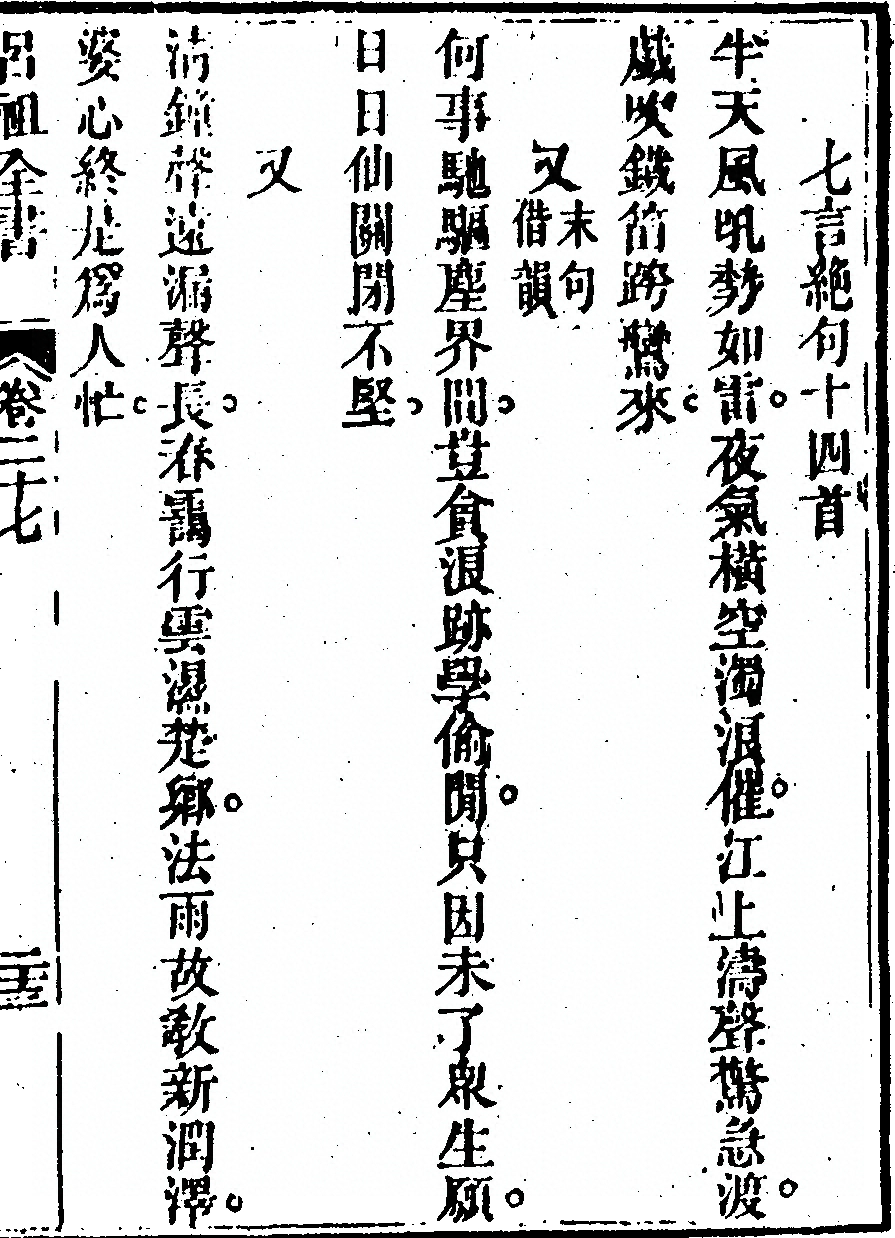 七言絶句十四首
半天風吼勢如雷夜氣橫空濁浪催江上濤聲驚急渡
戲吹鐵笛跨鸞來
又末句借韻
何事馳驅塵界間豈貪浪跡學偷閒只因未了眾生願
日日仙關閉不堅
又
清鐘聲遠漏聲長春靄行雲濕楚鄉法雨故敎新潤澤
婆心終是爲人忙
呂祖全書 卷二十七 二十五